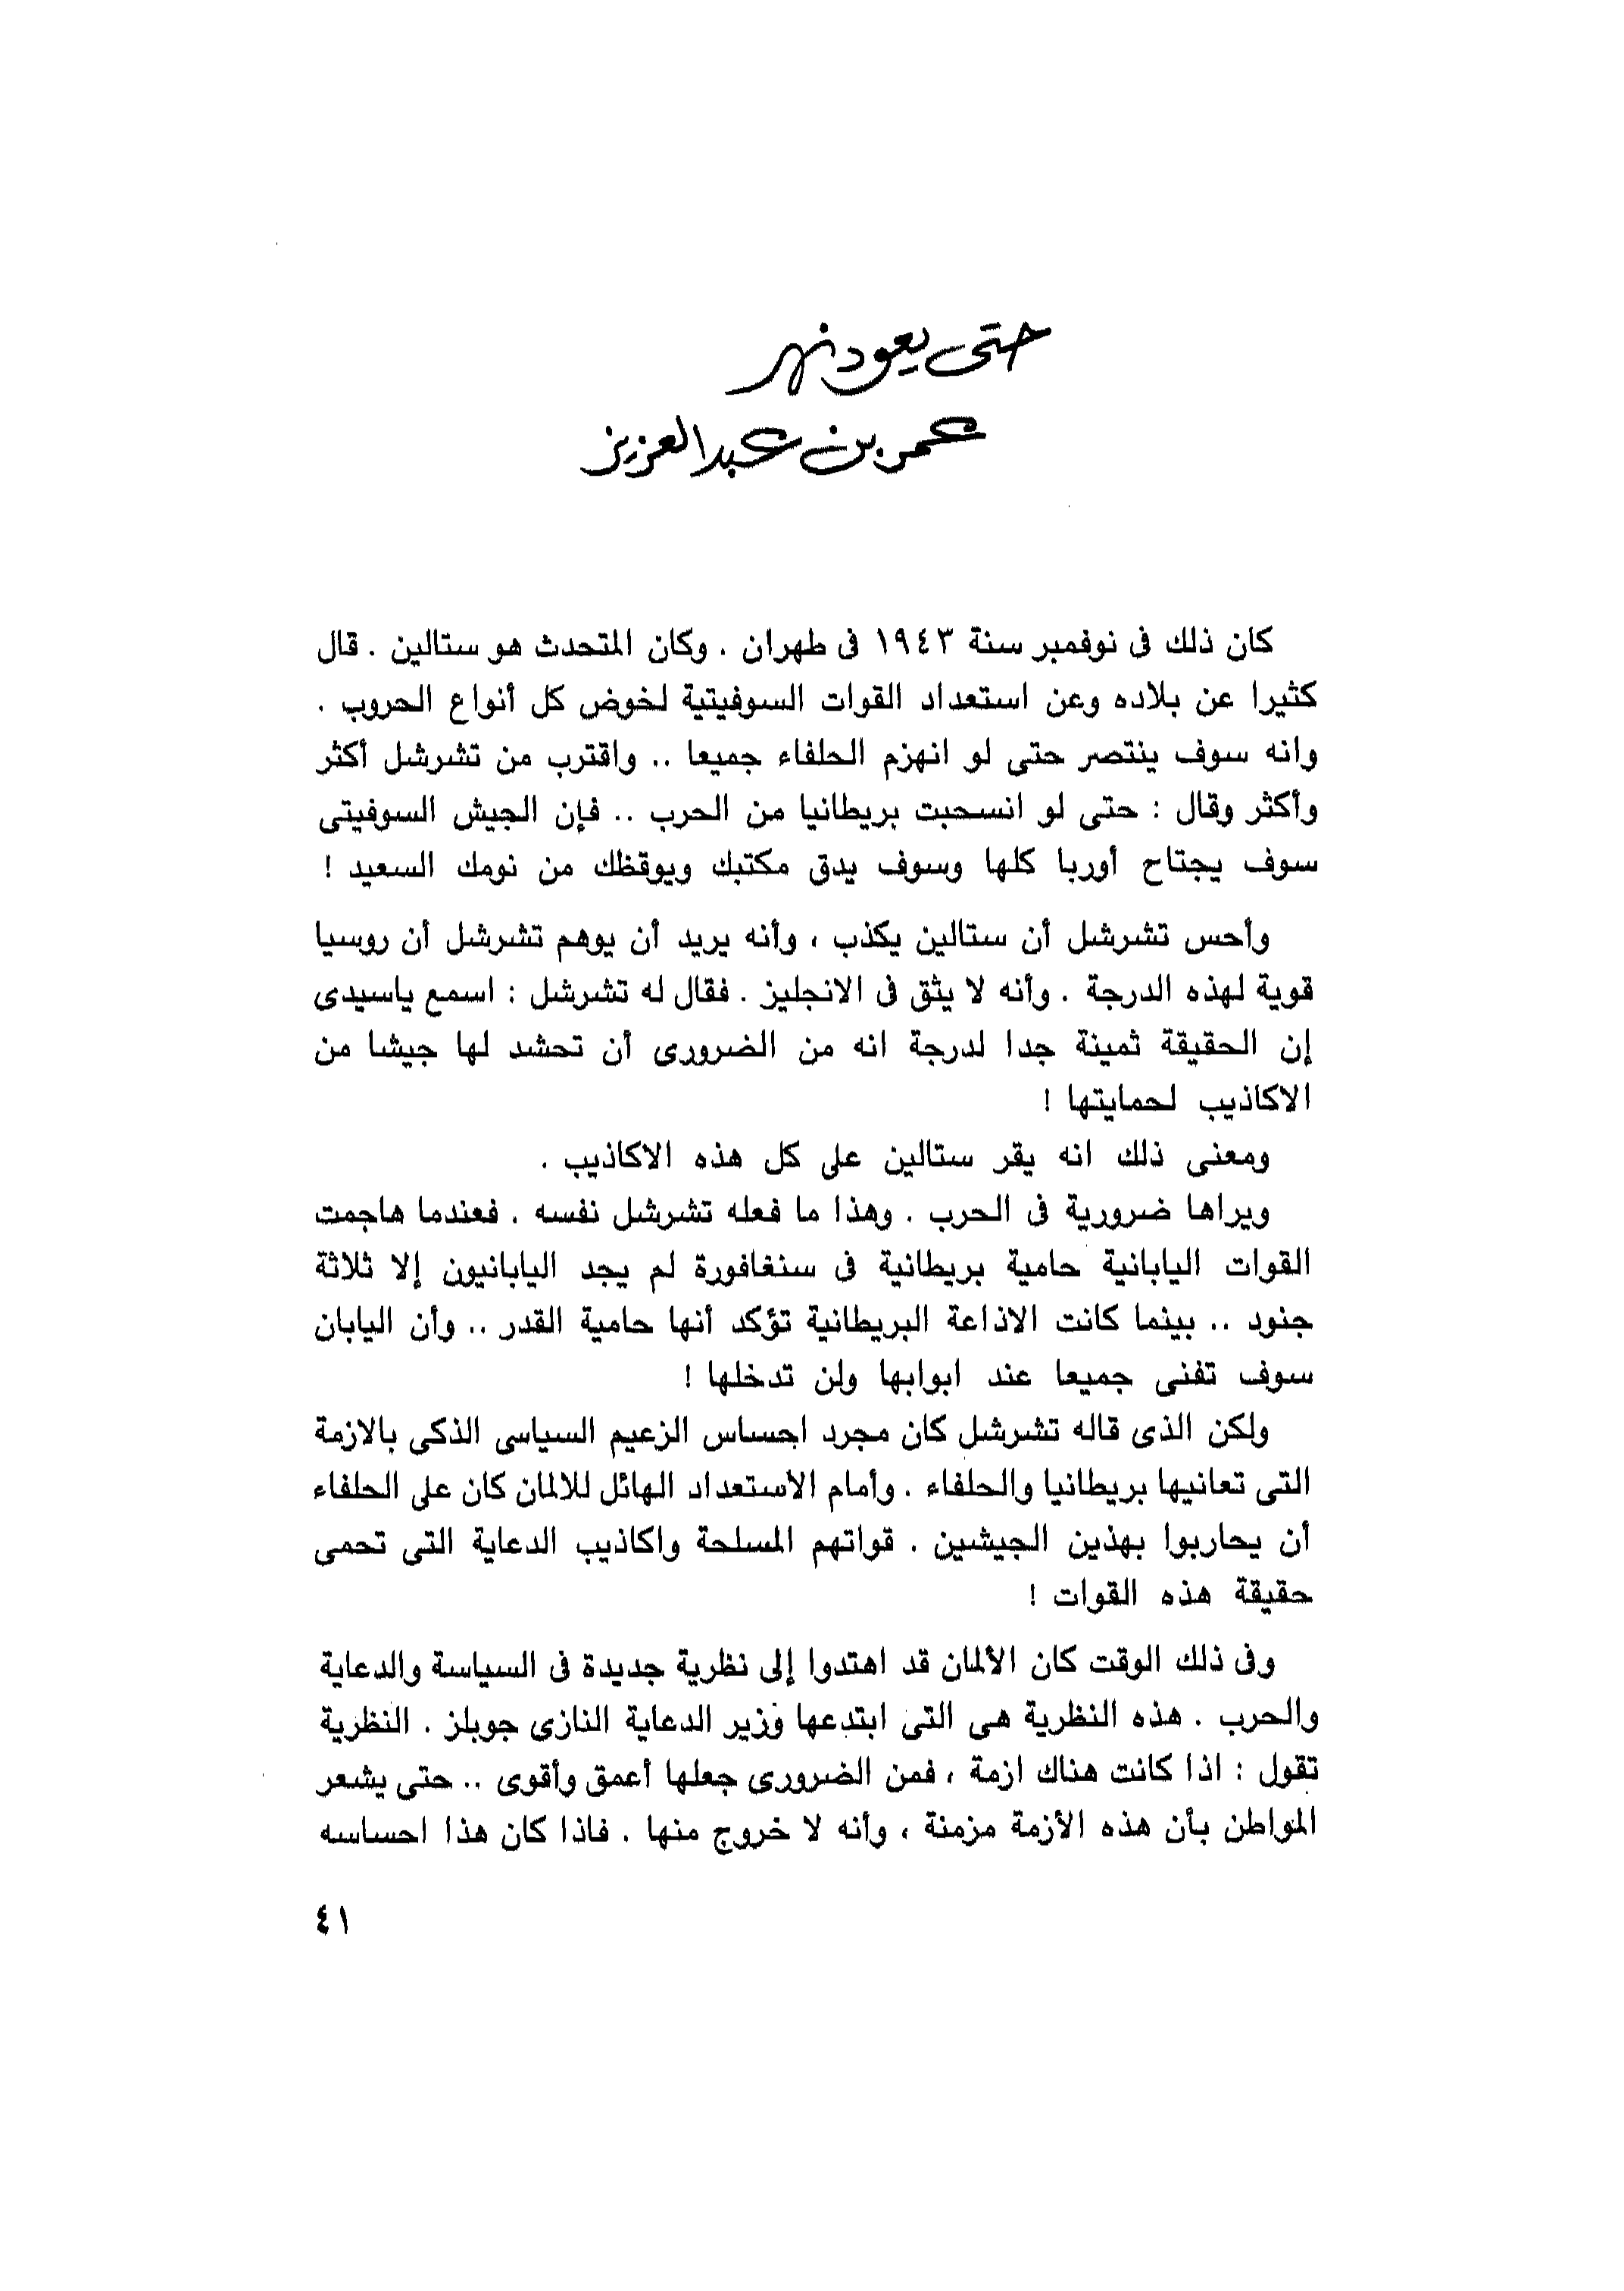 حتى يعود نهر
عمر بن عبد العزيز
كان ذلك فى نوفمبر سنة ١٩٤٣ فى طهران . وكان المتحدث هو ستالين . قال
كثيرا عن بلاده وعن استعداد القوات السوفيتية لخوض كل أنواع الحروب .
وانه سوف ينتصر حتى لو انهزم الحلفاء جميعا .. واقترب من تشرشل أكثر
وأكثر وقال : حتى لو انسحبت بريطانيا من الحرب .. فإن الجيش السوفيتى
سوف يجتاح أوربا كلها وسوف يدق مكتبك ويوقظك من نومك السعيد !
وأحس تشرشل أن ستالين يكذب ، وأنه يريد أن يوهم تشرشل أن روسيا
قوية لهذه الدرجة . وأنه لا يثق فى الانجليز . فقال له تشرشل : اسمع ياسيدى
إن الحقيقة ثمينة جدا لدرجة انه من الضرورى أن تحشد لها جيشا من
الاكاذيب لحمايتها !
ومعنى ذلك انه يقر ستالين على كل هذه الاكاذيب .
ويراها ضرورية فى الحرب . وهذا ما فعله تشرشل نفسه . فعندما هاجمت
القوات اليابانية حامية بريطانية فى سنغافورة لم يجد اليابانيون إلا ثلاثة
جنود .. بينما كانت الاذاعة البريطانية تؤكد أنها حامية القدر .. وأن اليابان
سوف تفنى جميعا عند ابوابها ولن تدخلها !
ولكن الذى قاله تشرشل كان مجرد احساس الزعيم السياسى الذكى بالازمة
التى تعانيها بريطانيا والحلفاء . وأمام الاستعداد الهائل للالمان كان على الحلفاء
أن يحاربوا بهذين الجيشين . قواتهم المسلحة واكاذيب الدعاية التى تحمى
حقيقة هذه القوات !
وفى ذلك الوقت كان الألمان قد اهتدوا إلى نظرية جديدة فى السياسة والدعاية
والحرب . هذه النظرية هى التى ابتدعها وزير الدعاية النازى جوبلز . النظرية
تقول : اذا كانت هناك ازمة ، فمن الضرورى جعلها أعمق وأقوى .. حتى يشعر
المواطن بأن هذه الأزمة مزمنة ، وأنه لا خروج منها . فاذا كان هذا احساسه
٤١